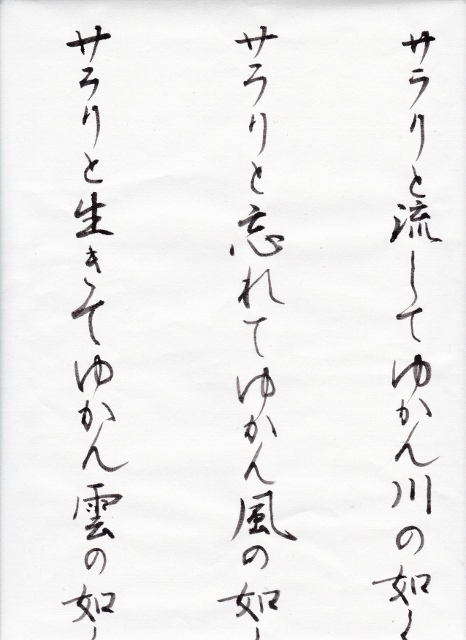 サラリと流してゆかん川の如し
サラリと忘れてゆかん風の如し
サラリと生きてゆかん雲の如し